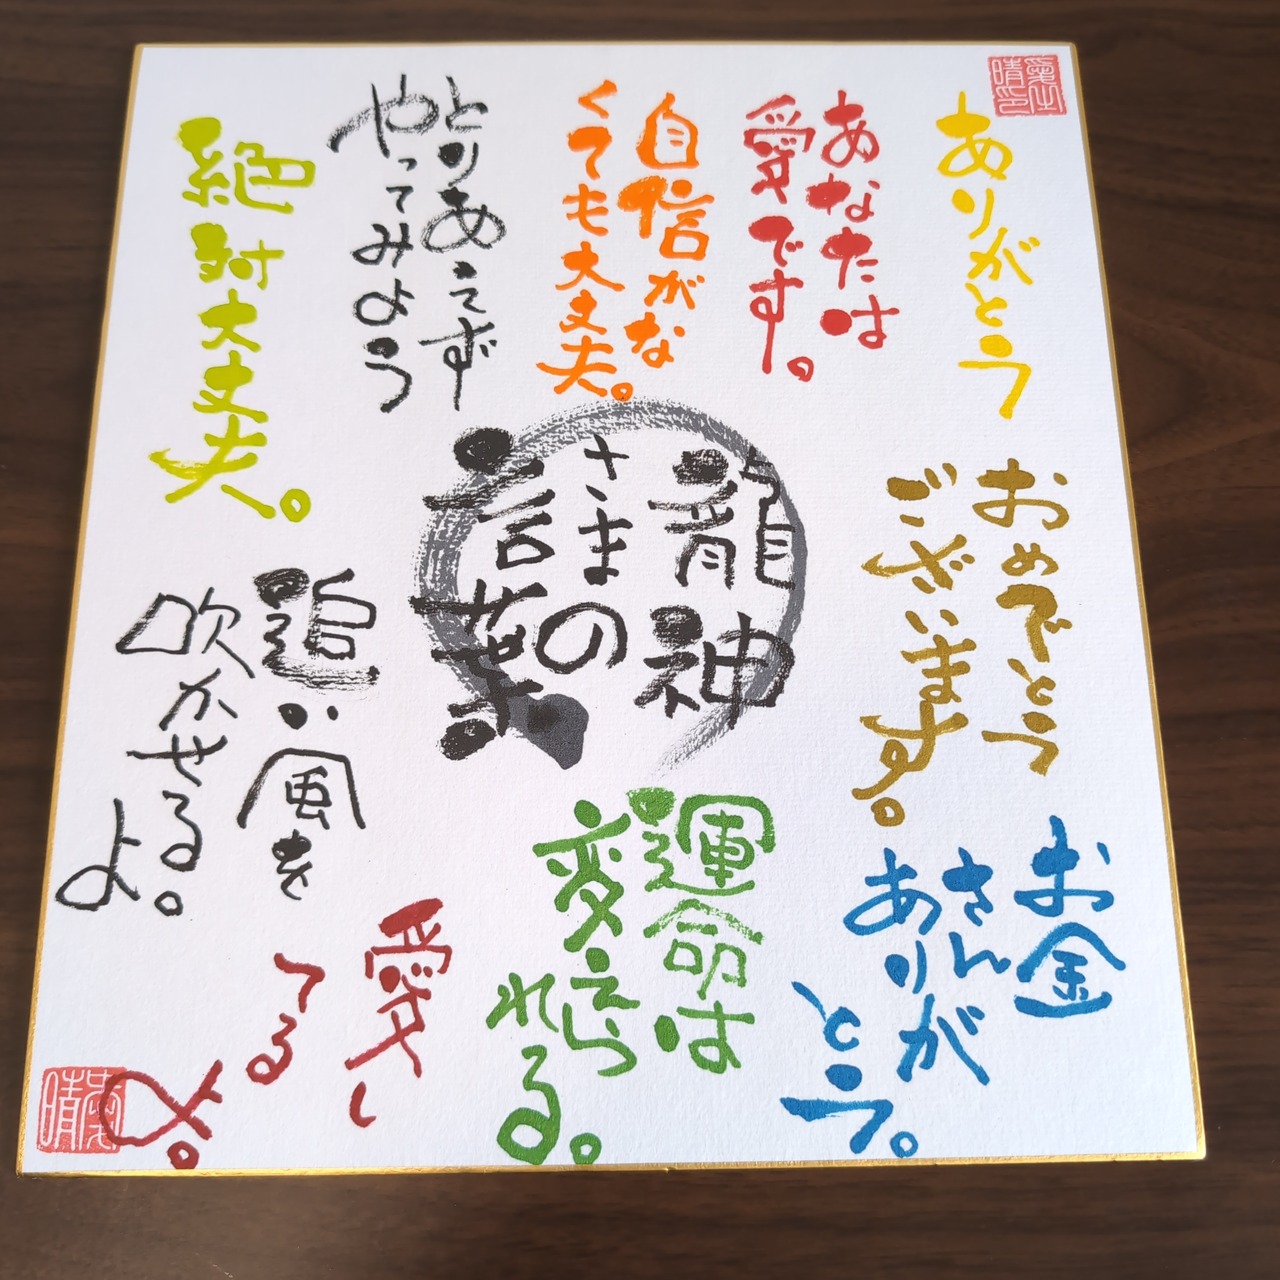 ありがとう
あなたは
愛です。
自信がな
くても大丈夫。
とりあえず
やってみよう
絶対大丈夫。
龍神
さまの
言葉
おめでとう
ございます。
お金
さん
ありが
とう。
運命は
変えら
れる。
愛し
てる
よ。
追い風を
吹かせる
よ。